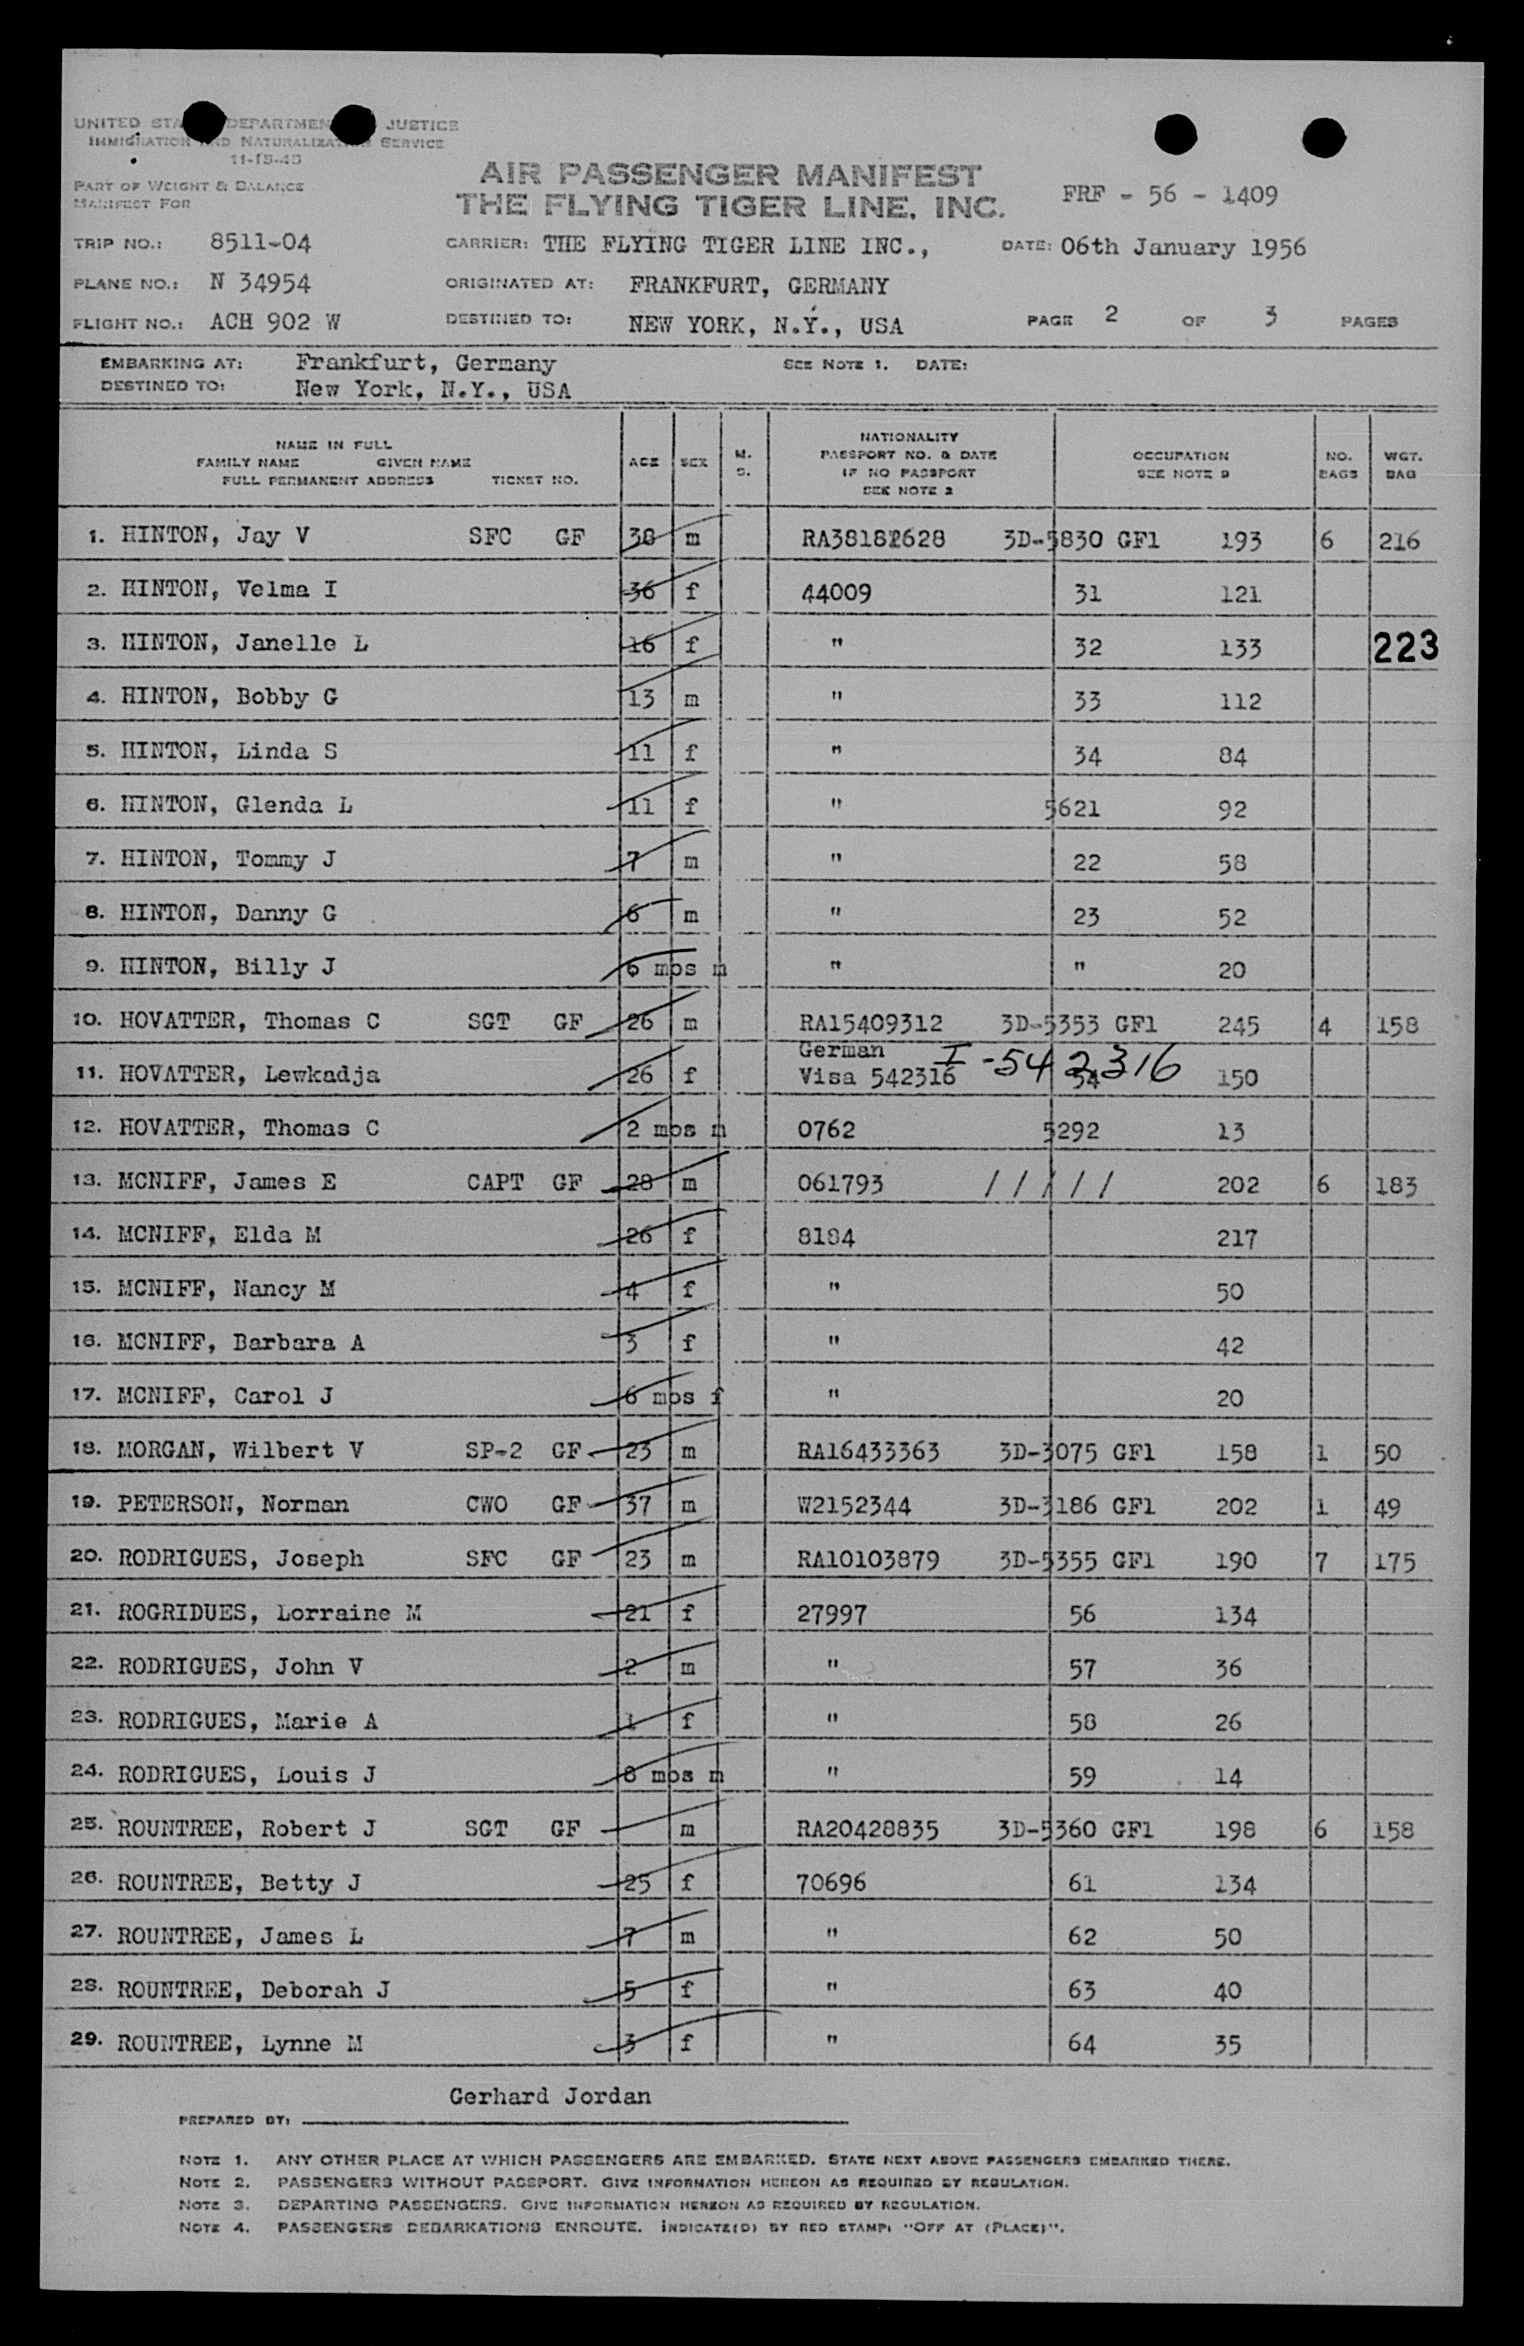 UNITED STA DEPARTMEN JUSTICE
IMMIGRATION AND NATURALIZATION SERVICE
11-15-45
PART OF WEIGHT & BALANCE
MANIFEST FOR
AIR PASSENGER MANIFEST
THE FLYING TIGER LINE, INC.
FRF - 56 - 1409
TRIP NO.: 8511-04 CARRIER: THE FLYING TIGER LINE INC., DATE: 06th January 1956
PLANE NO.: N 34954 ORIGINATED AT: FRANKFURT, GERMANY
FLIGHT NO.: ACH 902 W DESTINED TO: NEW YORK, N.Y., USA PAGE 2 OF 3 PAGES
EMBARKING AT: Frankfurt, Germany SEE NOTE 1. DATE:
DESTINED TO: New York, N.Y., USA
NAME IN FULL
FAMILY NAME GIVEN NAME
FULL PERMANENT ADDRESS TICKET NO.
AGE SEX M. S.
NATIONALITY
PASSPORT NO. & DATE
IF NO PASSPORT
SEE NOTE 2
OCCUPATION
SEE NOTE 3
NO. BAGS
WGT. BAG
1. HINTON, Jay V SFC GF 38 m RA38182628 3D-5830 GF1 193 6 216
2. HINTON, Velma I 36 f 44009 31 121
3. HINTON, Janelle L 16 f " 32 133 223
4. HINTON, Bobby G 13 m " 33 112
5. HINTON, Linda S 11 f " 34 84
6. HINTON, Glenda L 11 f " 5621 92
7. HINTON, Tommy J 7 m " 22 58
8. HINTON, Danny G 6 m " 23 52
9. HINTON, Billy J 6 mos m " " 20
10. HOVATTER, Thomas C SGT GF 26 m RA15409312 3D-5353 GF1 245 4 158
11. HOVATTER, Lewkadja 26 f German Visa 542316 I-542316 54 150
12. HOVATTER, Thomas C 2 mos m 0762 5292 13
13. MCNIFF, James E CAPT GF 28 m 061793 / / / / / 202 6 183
14. MCNIFF, Elda M 26 f 8184 217
15. MCNIFF, Nancy M 4 f " 50
16. MCNIFF, Barbara A 3 f " 42
17. MCNIFF, Carol J 6 mos f " 20
18. MORGAN, Wilbert V SP-2 GF 23 m RA16433363 3D-3075 GF1 158 1 50
19. PETERSON, Norman CWO GF 37 m W2152344 3D-3186 GF1 202 1 49
20. RODRIGUES, Joseph SFC GF 23 m RA10103879 3D-5355 GF1 190 7 175
21. ROGRIDUES, Lorraine M 21 f 27997 56 134
22. RODRIGUES, John V 2 m " 57 36
23. RODRIGUES, Marie A 1 f " 58 26
24. RODRIGUES, Louis J 8 mos m " 59 14
25. ROUNTREE, Robert J SGT GF m RA20428835 3D-5360 GF1 198 6 158
26. ROUNTREE, Betty J 25 f 70696 61 134
27. ROUNTREE, James L 7 m " 62 50
28. ROUNTREE, Deborah J 5 f " 63 40
29. ROUNTREE, Lynne M 3 f " 64 35
Gerhard Jordan
PREPARED BY:
NOTE 1. ANY OTHER PLACE AT WHICH PASSENGERS ARE EMBARKED. STATE NEXT ABOVE PASSENGERS EMBARKED THERE.
NOTE 2. PASSENGERS WITHOUT PASSPORT. GIVE INFORMATION HEREON AS REQUIRED BY REGULATION.
NOTE 3. DEPARTING PASSENGERS. GIVE INFORMATION HEREON AS REQUIRED BY REGULATION.
NOTE 4. PASSENGERS DEBARKATIONS ENROUTE. INDICATE(D) BY RED STAMP: "OFF AT (PLACE)".